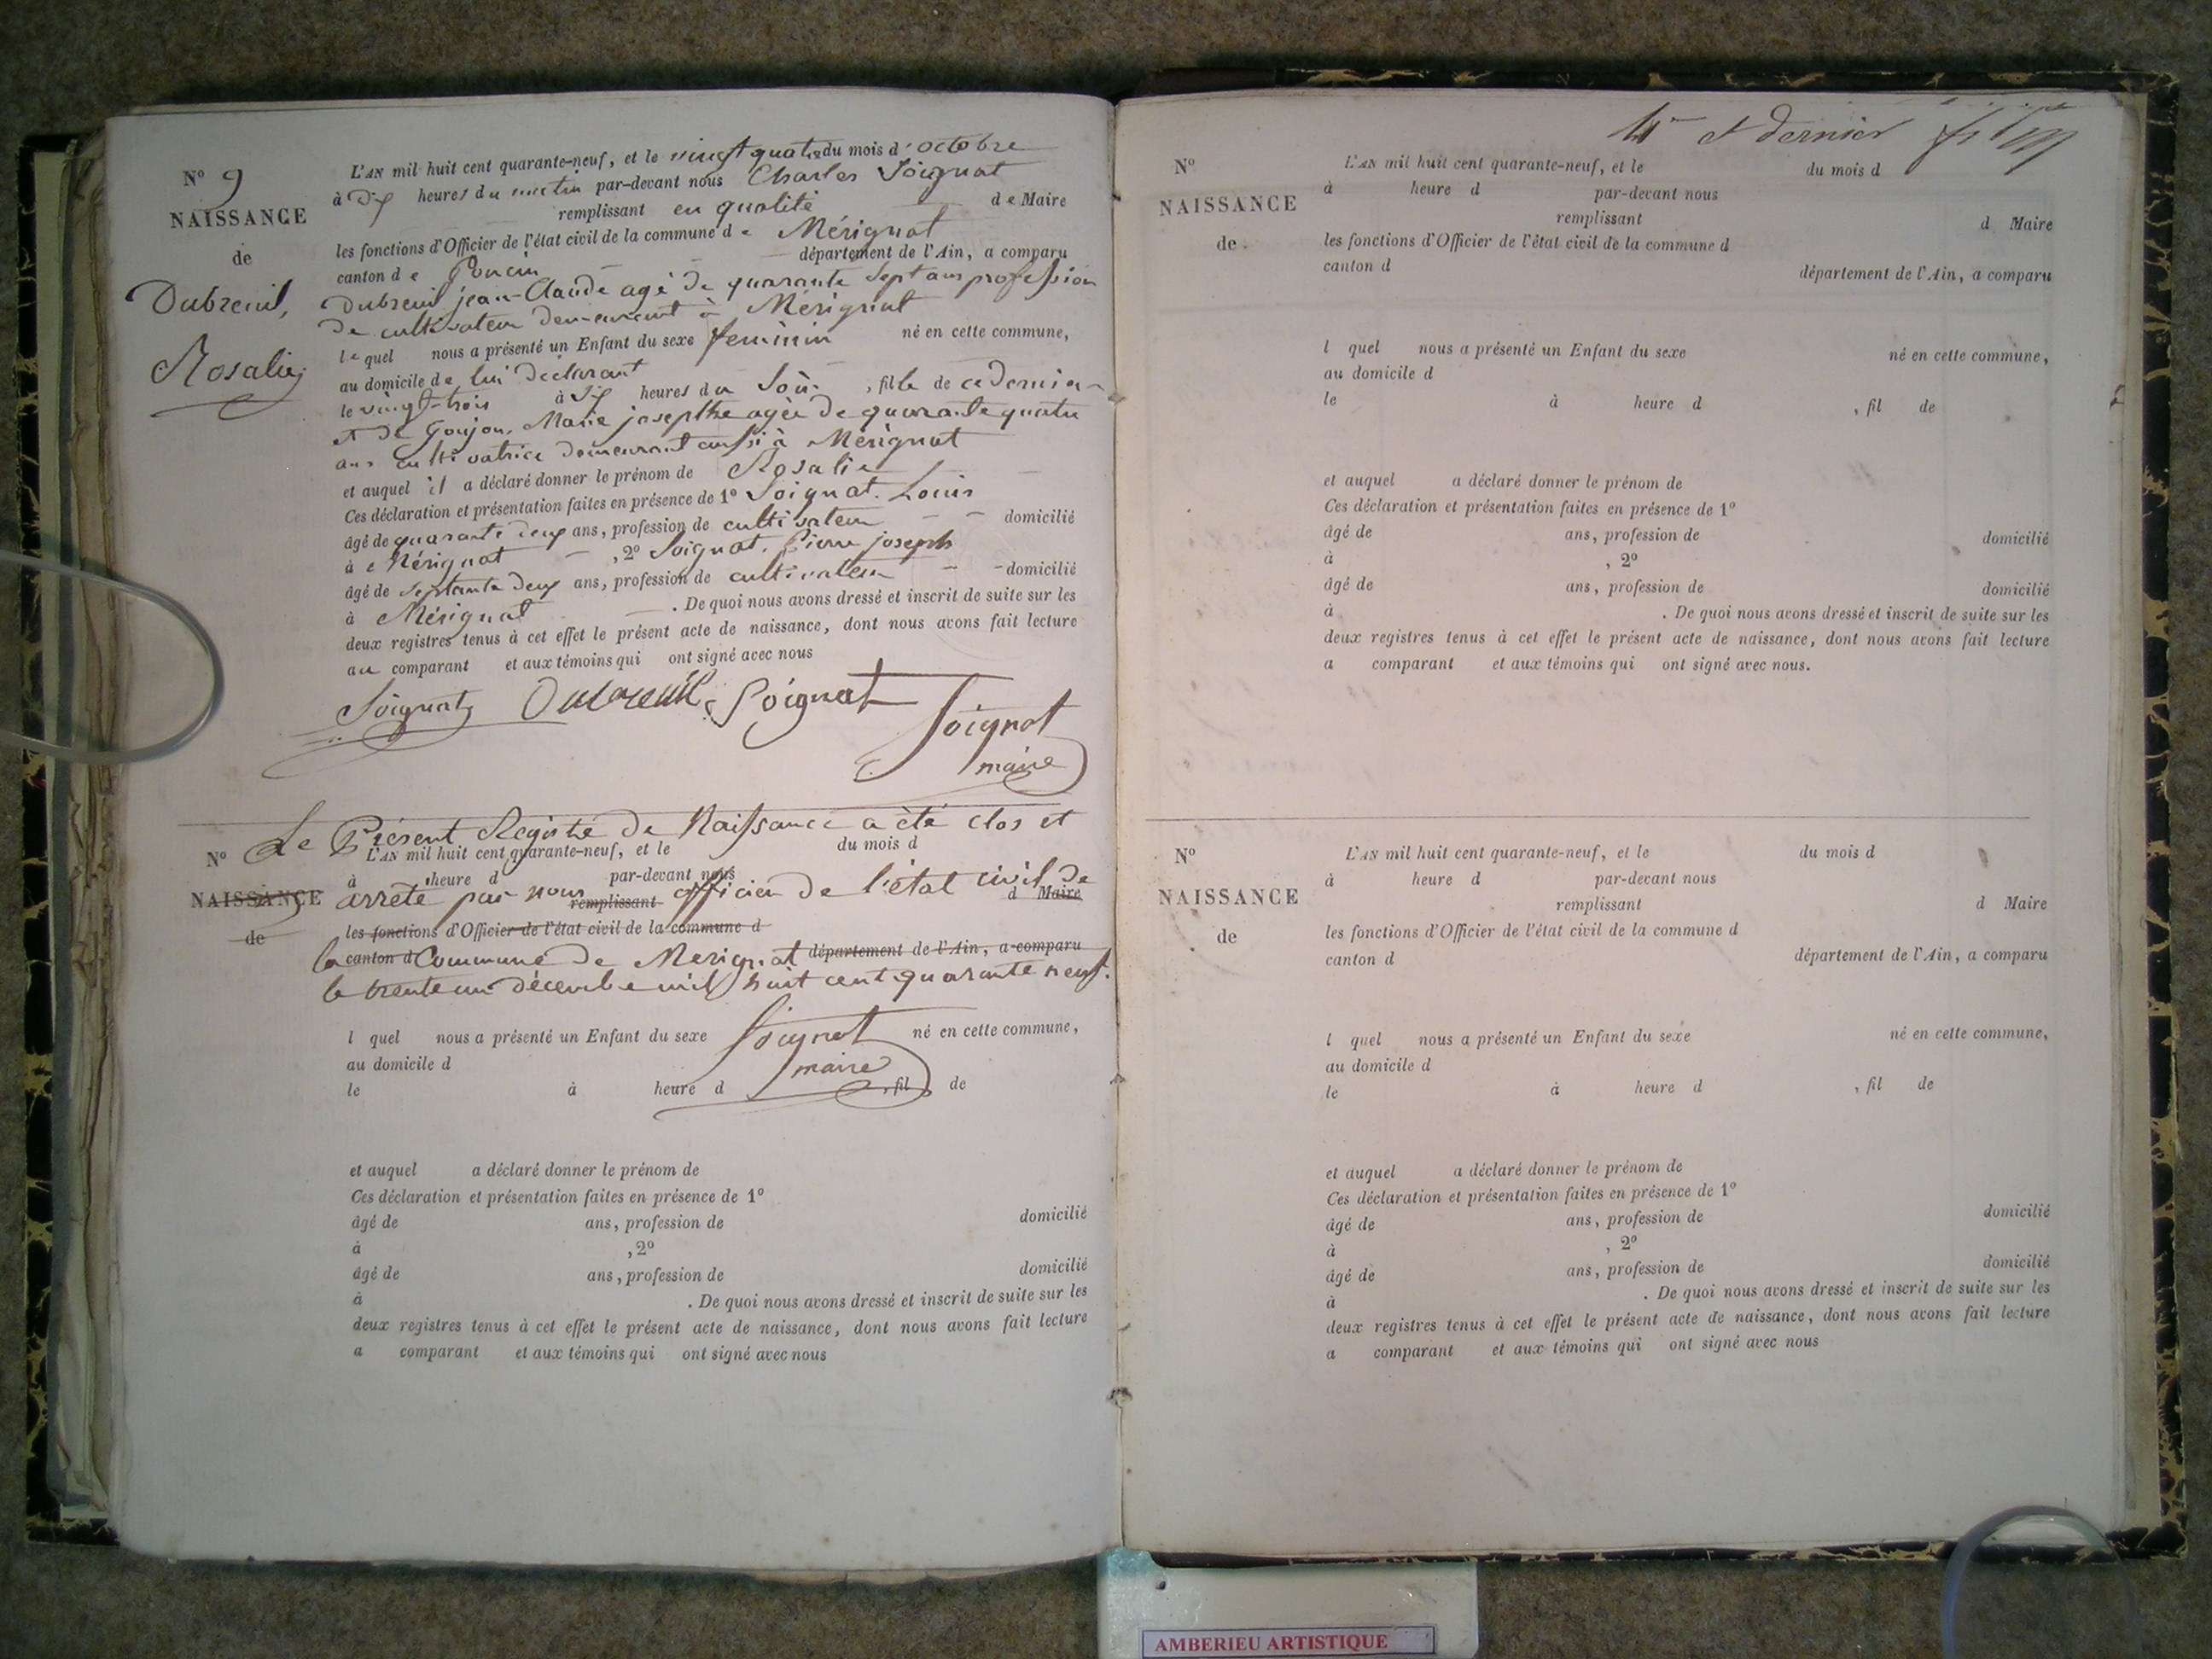 N° 9
NAISSANCE
de
Dubreuil,
Rosalie
L'AN mil huit cent quarante-neuf, et le vingt quatre du mois d'octobre
à dix heures du matin par-devant nous Charles Soignat
remplissant en qualité de Maire
les fonctions d'Officier de l'état civil de la commune de Mérignat
canton de Poncin département de l'Ain, a comparu
Dubreuil jean-Claude agé de quarante sept ans profession
de cultivateur demeurant à Mérignat
lequel nous a présenté un Enfant du sexe feminin né en cette commune,
au domicile de lui déclarant
le vingt-trois à dix heures du Soir, fille de ce dernier
et de Goujon, Marie josepthe agée de quarante quatre
ans cultivatrice demeurant aussi à Mérignat
et auquel il a déclaré donner le prénom de Rosalie
Ces déclaration et présentation faites en présence de 1° Soignat. Louis
âgé de quarante deux ans, profession de cultivateur domicilié
à Mérignat , 2° Soignat, Pierre joseph
âgé de septante deux ans, profession de cultivateur domicilié
à Mérignat . De quoi nous avons dressé et inscrit de suite sur les
deux registres tenus à cet effet le présent acte de naissance, dont nous avons fait lecture
au comparant et aux témoins qui ont signé avec nous
Soignat Dubreuil Soignat
Soignat
maire
Le Présent Registre de Naissance a été clos et
N° L'AN mil huit cent quarante-neuf, et le du mois d
à heure d par-devant nous
NAISSANCE arrêté par nous remplissant officier de l'état civil de d Maire
de les fonctions d'Officier de l'état civil de la commune d
la canton d Commune de Merignat département de l'Ain, a comparu
le trente un décembre mil huit cent quarante neuf.
l quel nous a présenté un Enfant du sexe Soignat né en cette commune,
au domicile d maire
le à heure d , fil de
et auquel a déclaré donner le prénom de
Ces déclaration et présentation faites en présence de 1°
âgé de ans, profession de domicilié
à , 2°
âgé de ans, profession de domicilié
à . De quoi nous avons dressé et inscrit de suite sur les
deux registres tenus à cet effet le présent acte de naissance, dont nous avons fait lecture
a comparant et aux témoins qui ont signé avec nous
et dernier
N° L'AN mil huit cent quarante-neuf, et le du mois d
à heure d par-devant nous
NAISSANCE remplissant d Maire
de les fonctions d'Officier de l'état civil de la commune d
canton d département de l'Ain, a comparu
l quel nous a présenté un Enfant du sexe né en cette commune,
au domicile d
le à heure d , fil de
et auquel a déclaré donner le prénom de
Ces déclaration et présentation faites en présence de 1°
âgé de ans, profession de domicilié
à , 2°
âgé de ans, profession de domicilié
à . De quoi nous avons dressé et inscrit de suite sur les
deux registres tenus à cet effet le présent acte de naissance, dont nous avons fait lecture
a comparant et aux témoins qui ont signé avec nous.
N° L'AN mil huit cent quarante-neuf, et le du mois d
à heure d par-devant nous
NAISSANCE remplissant d Maire
de les fonctions d'Officier de l'état civil de la commune d
canton d département de l'Ain, a comparu
l quel nous a présenté un Enfant du sexe né en cette commune,
au domicile d
le à heure d , fil de
et auquel a déclaré donner le prénom de
Ces déclaration et présentation faites en présence de 1°
âgé de ans, profession de domicilié
à , 2°
âgé de ans, profession de domicilié
à . De quoi nous avons dressé et inscrit de suite sur les
deux registres tenus à cet effet le présent acte de naissance, dont nous avons fait lecture
a comparant et aux témoins qui ont signé avec nous
AMBERIEU ARTISTIQUE